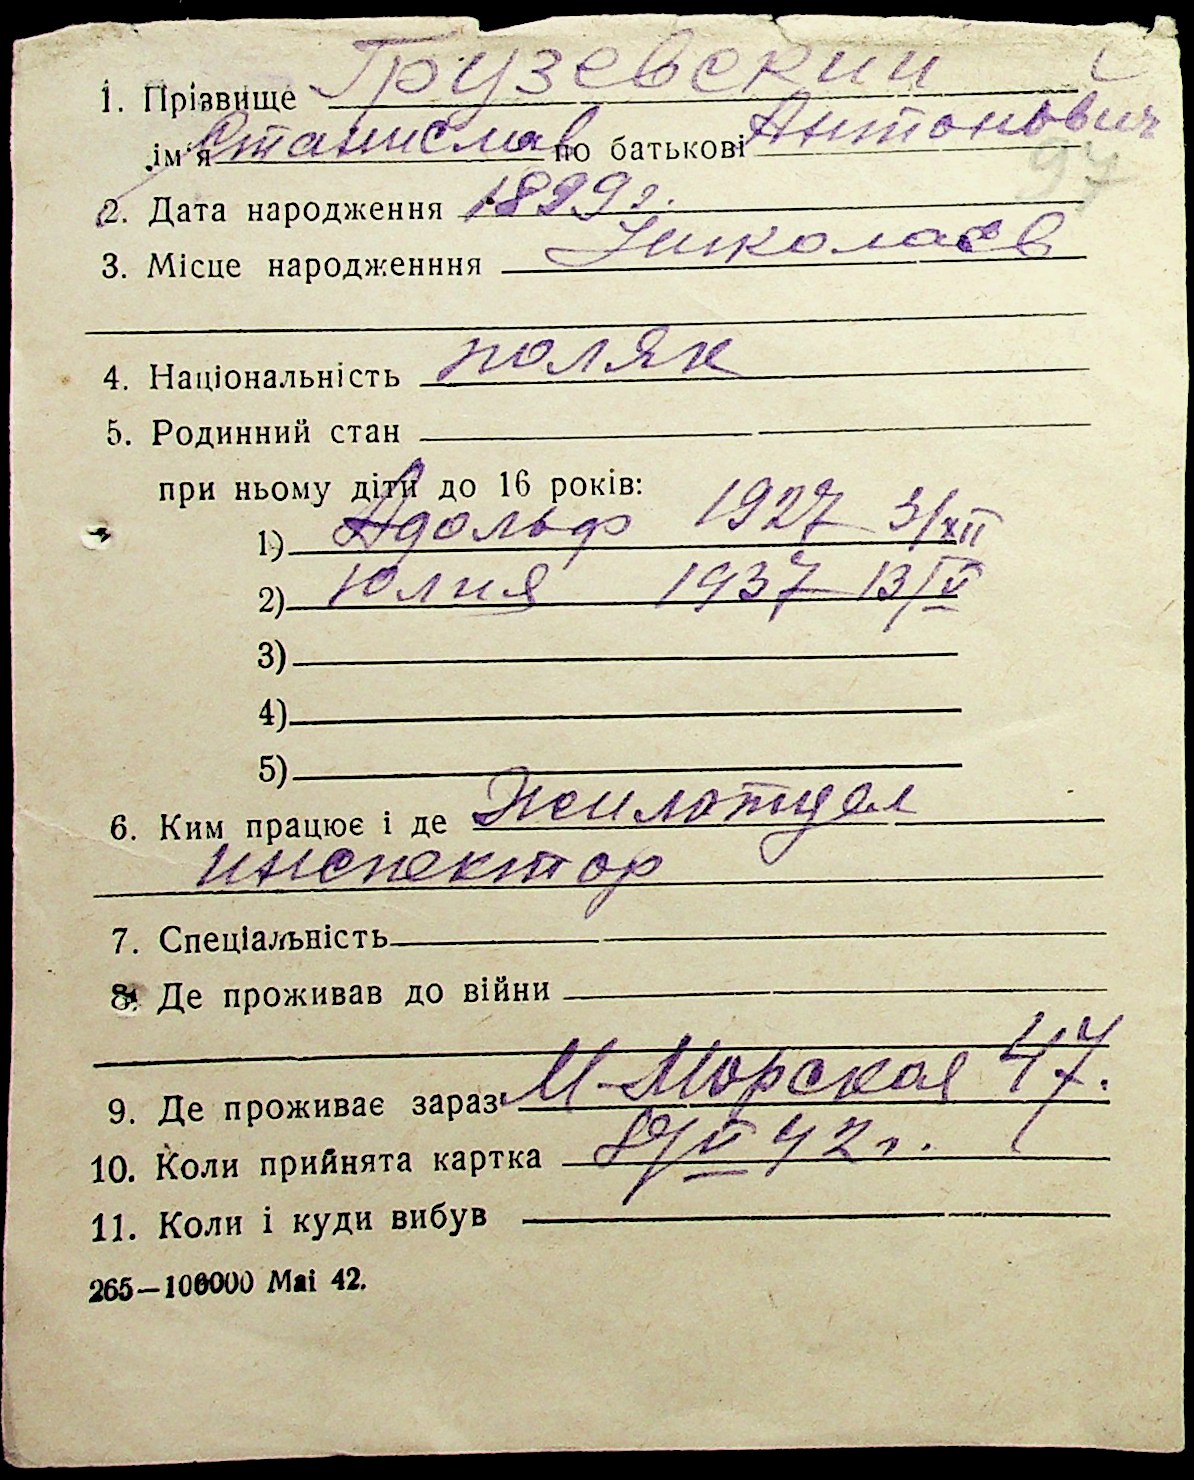 1. Прізвище Грузевский
ім'я Станислав по батькові Антонович
97
2. Дата народження 1899 г.
3. Місце народженння Николаев
4. Національність поляк
5. Родинний стан
при ньому діти до 16 років:
1) Адольф 1927 3/XII
2) Юлия 1937 13/V
3)
4)
5)
6. Ким працює і де Жилотдел
инспектор
7. Спеціальність
8. Де проживав до війни
9. Де проживає зараз М-Морская 47.
10. Коли прийнята картка 42 г.
11. Коли і куди вибув
265—100000 Mai 42.